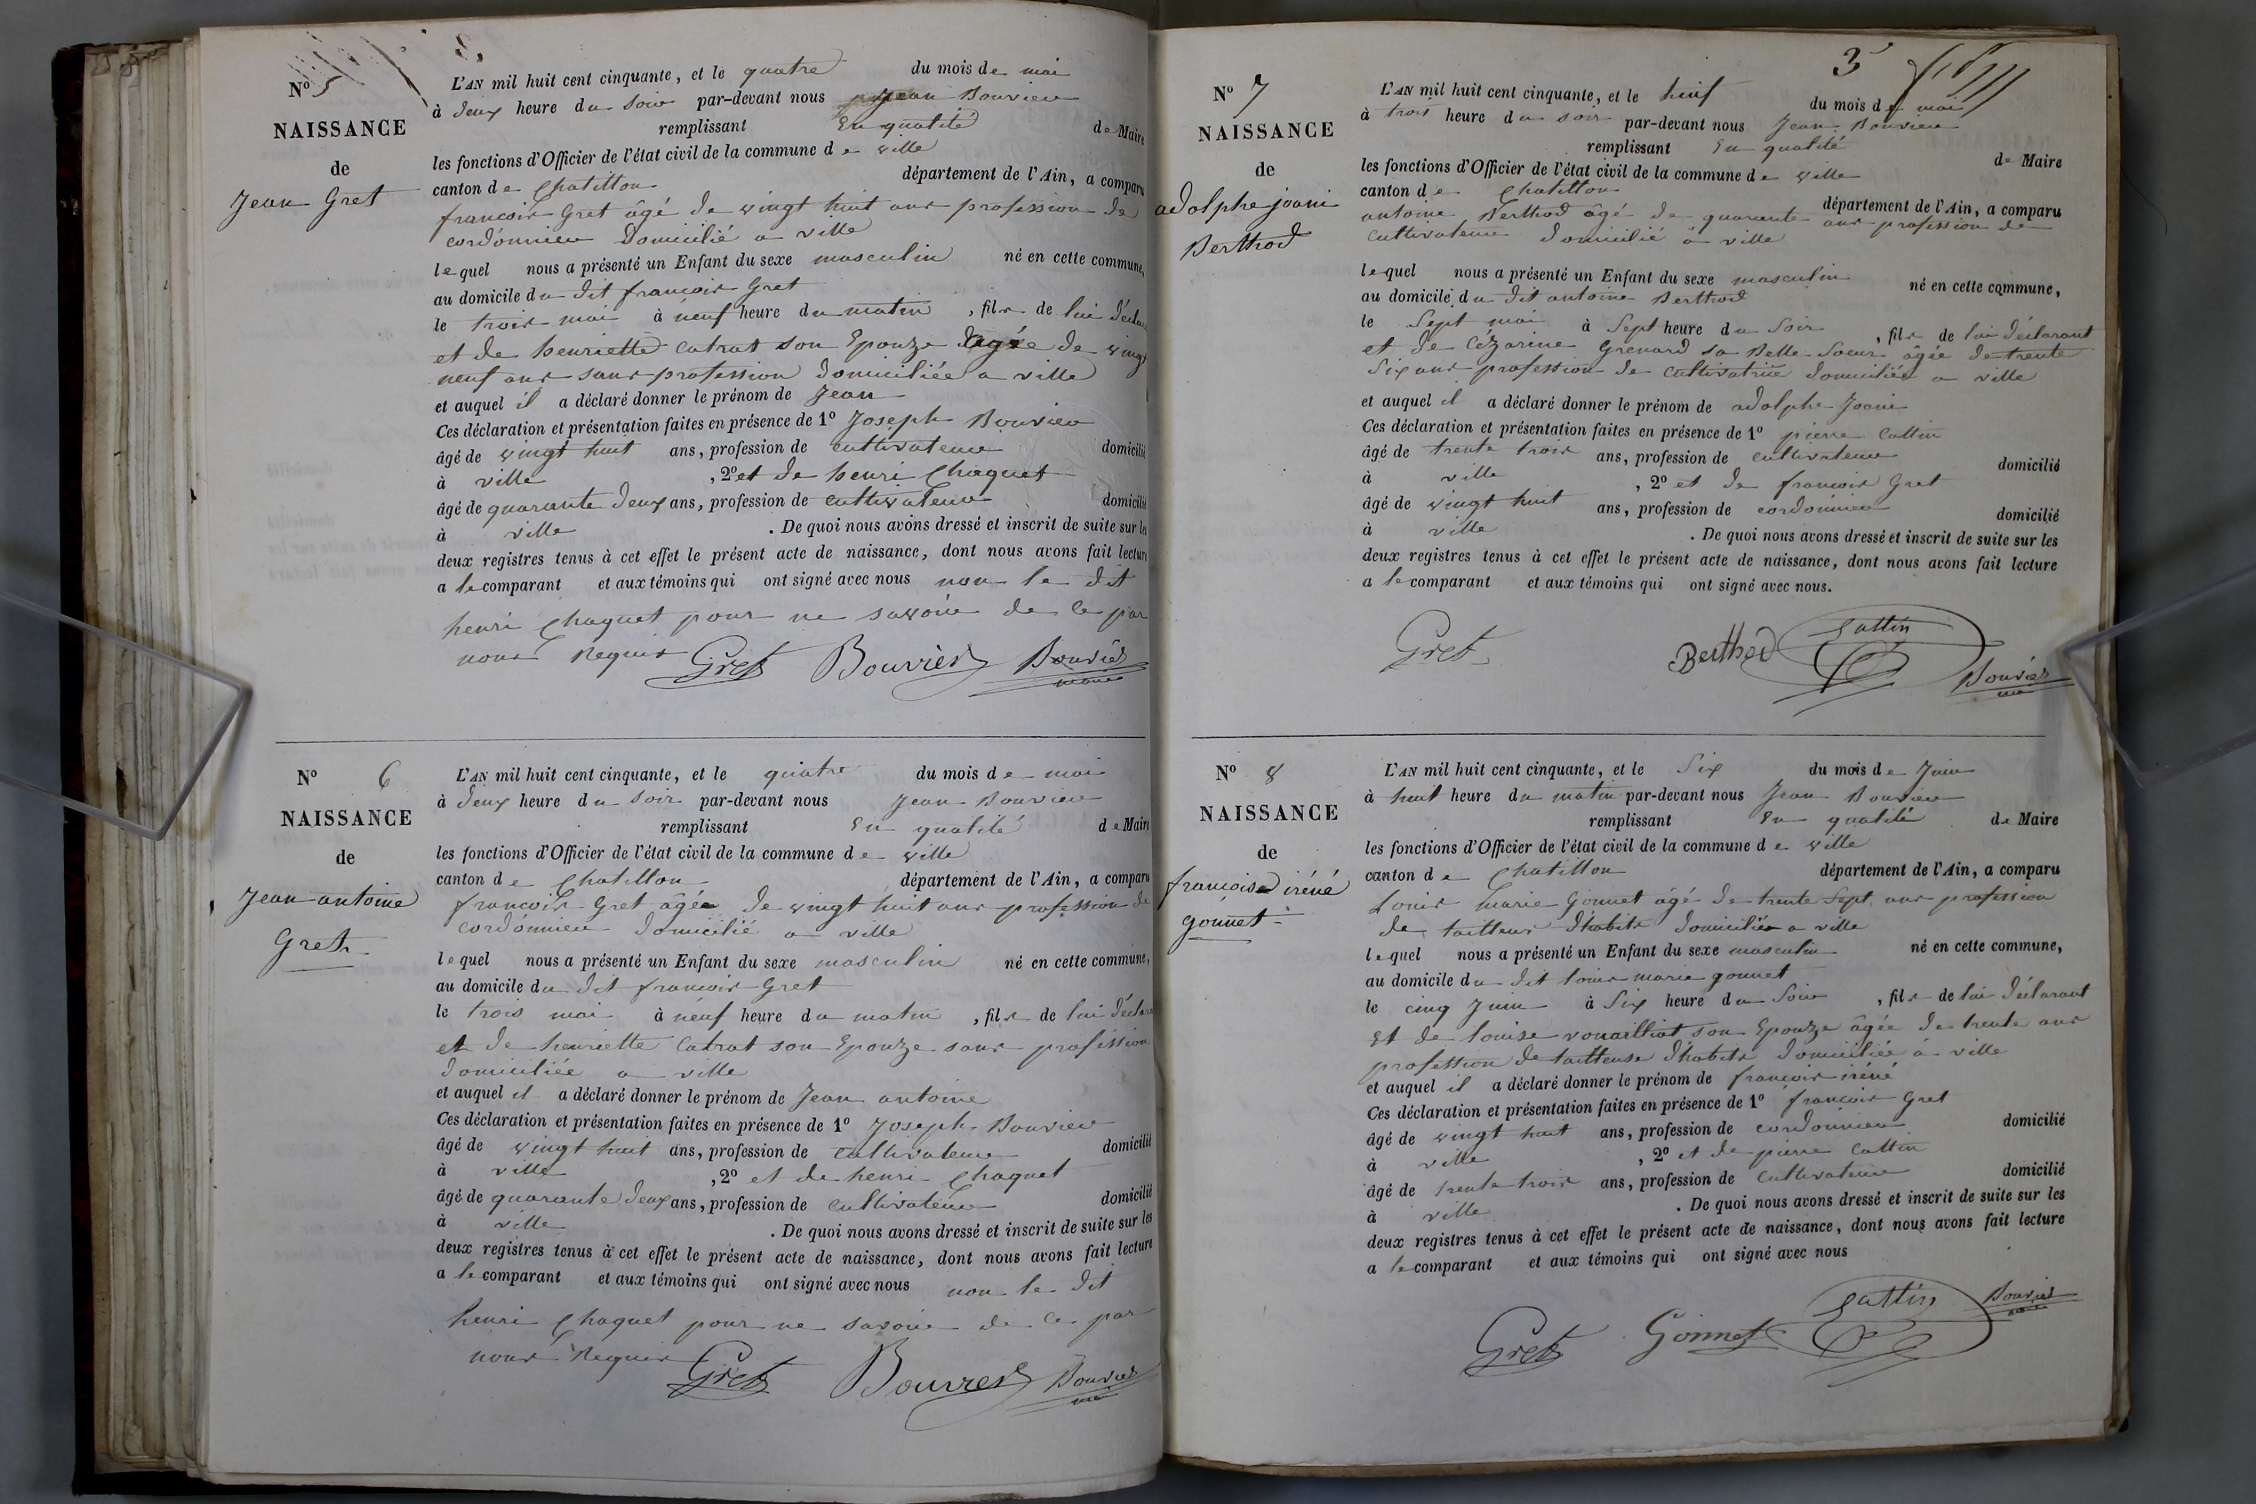 Nº 5
NAISSANCE
de
Jean Gret
L'AN mil huit cent cinquante, et le quatre du mois de mai
à deux heure du soir par-devant nous Jean Bouvier
remplissant En qualité de Maire
les fonctions d'Officier de l'état civil de la commune de ville
canton de Chatillon département de l'Ain, a comparu
francois Gret âgé de vingt huit ans profession de
cordónnier Domicilié a ville
lequel nous a présenté un Enfant du sexe masculin né en cette commune,
au domicile du dit francois Gret
le trois mai à neuf heure du matin, fils de lui déclar
et de henriette Catrat son Epouze âgée de vingt
neuf ans sans profession domiciliée a ville
et auquel il a déclaré donner le prénom de Jean
Ces déclaration et présentation faites en présence de 1º Joseph Bouvier
âgé de vingt huit ans, profession de cultivateur domicilié
à ville, 2º et de henri Chaquet
âgé de quarante deux ans, profession de cultivateur domicilié
à ville. De quoi nous avons dressé et inscrit de suite sur les
deux registres tenus à cet effet le présent acte de naissance, dont nous avons fait lecture
a le comparant et aux témoins qui ont signé avec nous non le dit
henri Chaquet pour ne savoir de ce par
nous Requis Gret Bouvier Bouvier
maire
Nº 6
NAISSANCE
de
Jean antoine
Gret
L'AN mil huit cent cinquante, et le quatre du mois de mai
à deux heure du soir par-devant nous Jean Bouvier
remplissant En qualité de Maire
les fonctions d'Officier de l'état civil de la commune de ville
canton de Chatillon département de l'Ain, a comparu
francois Gret agée de vingt huit ans profession de
cordónnier domicilié a ville
lequel nous a présenté un Enfant du sexe masculin né en cette commune,
au domicile du dit francois Gret
le trois mai à neuf heure du matin, fils de lui déclar
et de henriette Catrat son Epouze sans profession
domiciliée a ville
et auquel il a déclaré donner le prénom de Jean antoine
Ces déclaration et présentation faites en présence de 1º Joseph Bouvier
âgé de vingt huit ans, profession de cultivateur domicilié
à ville, 2º et de henri Chaquet
âgé de quarante deux ans, profession de cultivateur domicilié
à ville. De quoi nous avons dressé et inscrit de suite sur les
deux registres tenus à cet effet le présent acte de naissance, dont nous avons fait lecture
a le comparant et aux témoins qui ont signé avec nous non le dit
henri Chaquet pour ne savoir de ce par
nous Requis Gret Bouvier Bouvier
3
Nº 7
NAISSANCE
de
adolphe joani
Berthod
L'AN mil huit cent cinquante, et le huit du mois de mai
à trois heure du soir par-devant nous Jean Bouvier
remplissant En qualité de Maire
les fonctions d'Officier de l'état civil de la commune de ville
canton de Chatillon département de l'Ain, a comparu
antoine Berthod âgé de quarante ans profession de
cultivateur domicilié à ville
lequel nous a présenté un Enfant du sexe masculin né en cette commune,
au domicile du dit antoine Berthod
le Sept mai à Sept heure du Soir, fils de lui déclarant
et de Cézarine Grenard sa Belle Soeur âgée de trente
Six ans profession de cultivatrice domiciliée a ville
et auquel il a déclaré donner le prénom de adolphe Joani
Ces déclaration et présentation faites en présence de 1º pierre Cattin
âgé de trente trois ans, profession de cultivateur domicilié
à ville, 2º et de francois Gret
âgé de vingt huit ans, profession de cordónnier domicilié
à ville. De quoi nous avons dressé et inscrit de suite sur les
deux registres tenus à cet effet le présent acte de naissance, dont nous avons fait lecture
a le comparant et aux témoins qui ont signé avec nous.
Gret Berthod Cattin Bouvier
Nº 8
NAISSANCE
de
francois iréné
gónnet
L'AN mil huit cent cinquante, et le Six du mois de Juin
à huit heure du matin par-devant nous Jean Bouvier
remplissant En qualité de Maire
les fonctions d'Officier de l'état civil de la commune de ville
canton de Chatillon département de l'Ain, a comparu
Louis Marie Gonnet âgé de trente Sept ans profession
de tailleur d'habits domicilié a ville
lequel nous a présenté un Enfant du sexe masculin né en cette commune,
au domicile du dit louis marie gonnet
le cinq Juin à Six heure du Soir, fils de lui déclarant
et de louise vouailliat son Epouze âgée de trente ans
profession de tailleuse d'habits domiciliée à ville
et auquel il a déclaré donner le prénom de francois iréné
Ces déclaration et présentation faites en présence de 1º francois Gret
âgé de vingt huit ans, profession de cordónnier domicilié
à ville, 2º et de pierre Cattin
âgé de trente trois ans, profession de cultivateur domicilié
à ville. De quoi nous avons dressé et inscrit de suite sur les
deux registres tenus à cet effet le présent acte de naissance, dont nous avons fait lecture
a le comparant et aux témoins qui ont signé avec nous
Gret Gonnet Cattin Bouvier